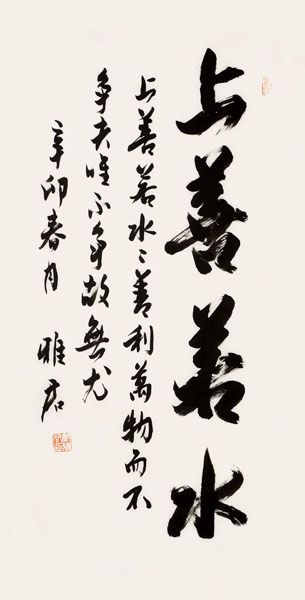 上善若水
上善若水〻善利萬物而不
争夫唯不争故無尤
辛卯春月 雅君